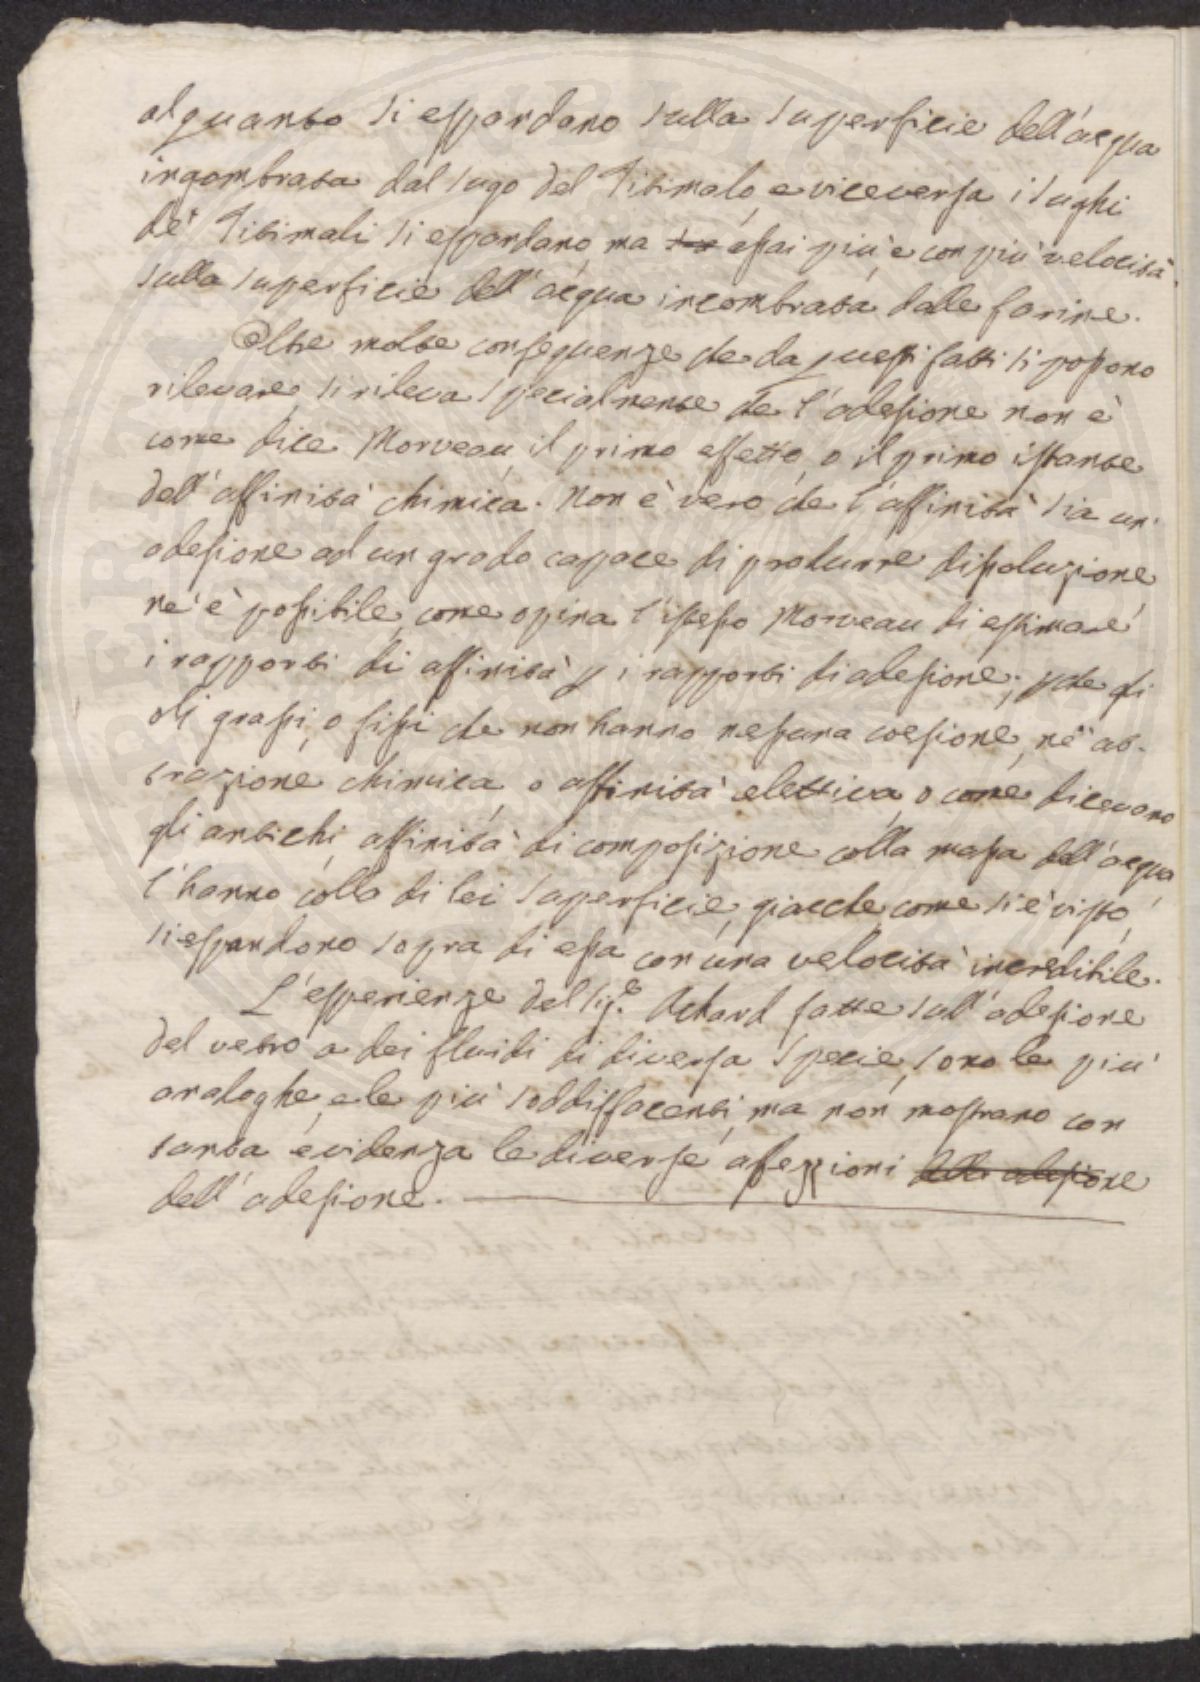 alquanto si espandano sulla superficie dell'acqua
ingombrata dal sugo del Titimalo, e viceversa i sughi
de' Titimali si espandano, ma assai più, e con più velocità
sulla superficie dell'acqua incombrata dalle farine.
Oltre molte conseguenze che da questi fatti si possono
rilevare, si rileva specialmente che l'adesione non è
come dice Morveau, il primo effetto, o il primo istante
dell'affinità chimica. Non è vero che l'affinità sia un'
adesione ad un grado capace di produrre dissoluzione
nè è possibile, come opina l'istesso Morveau di estimare
i rapporti di affinità p i rapporti di adesione; pche gli
olj grassi, o fissi che non hanno nessuna coesione, nè at-
trazione chimica, o affinità elettiva, o come dicevano
gli antichi, affinità di composizione colla massa dell'acqua
l'hanno colla di lei superficie, giacche come si è visto,
si espandono sopra di essa con una velocità incredibile.
L'esperienze del Sig.e Achard fatte sull'adesione
del vetro a dei fluidi di diversa specie, sono le più
analoghe, e le più soddisfacenti, ma non mostrano con
tanta evidenza le diverse affezzioni della adesione
dell'adesione.